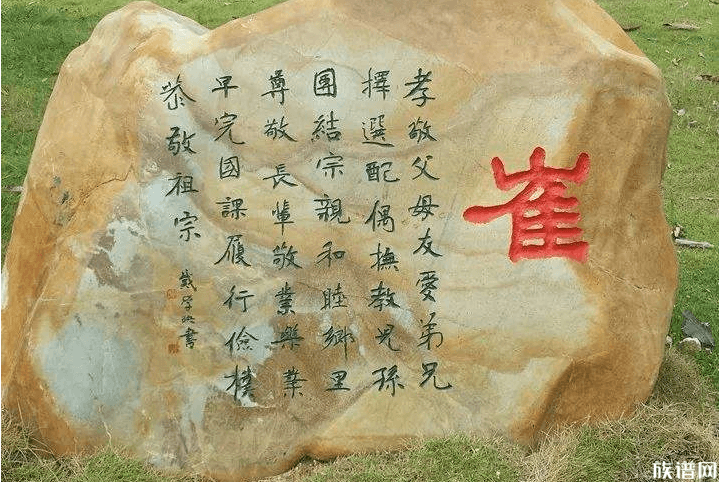 崔
孝敬父母友愛弟兄
擇選配偶撫教兒孫
團結宗親和睦鄉里
尊敬長輩敬業樂業
早完國課履行儉樸
恭敬祖宗
書
族谱网